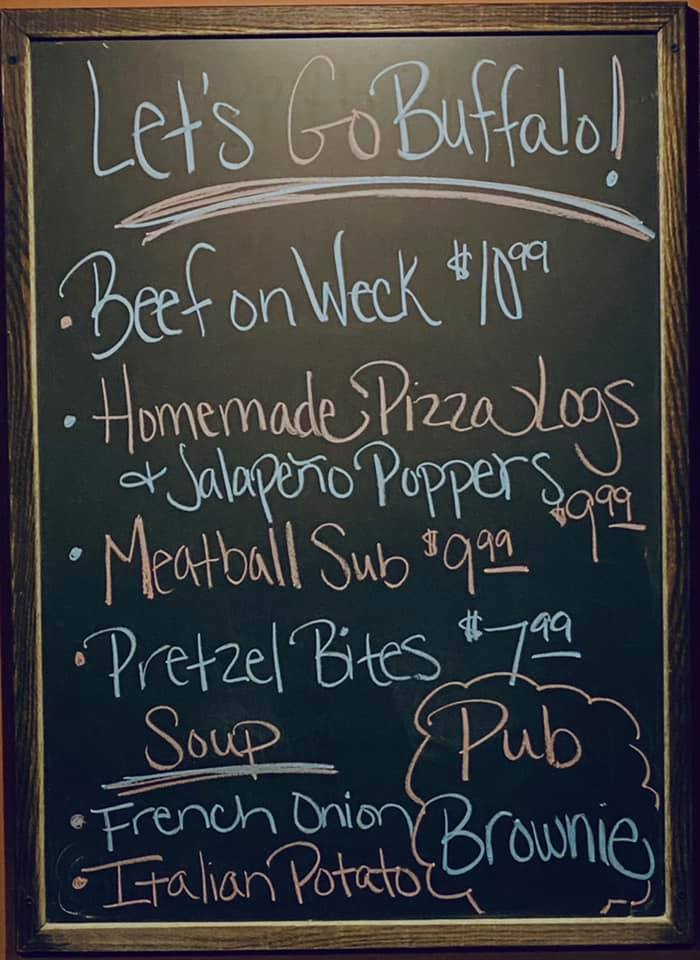 Let's Go Buffalo!
• Beef on Weck $10.99
• Homemade Pizza Logs
+ Jalapeño Poppers $9.99
• Meatball Sub $9.99
• Pretzel Bites $7.99
Soup
• French Onion
• Italian Potato
Pub
Brownie